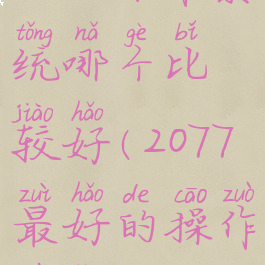 tǒng nǎ gè bǐ
统哪个比
jiào hǎo
较好(2077
zuì hǎo de cāo zuò
最好的操作